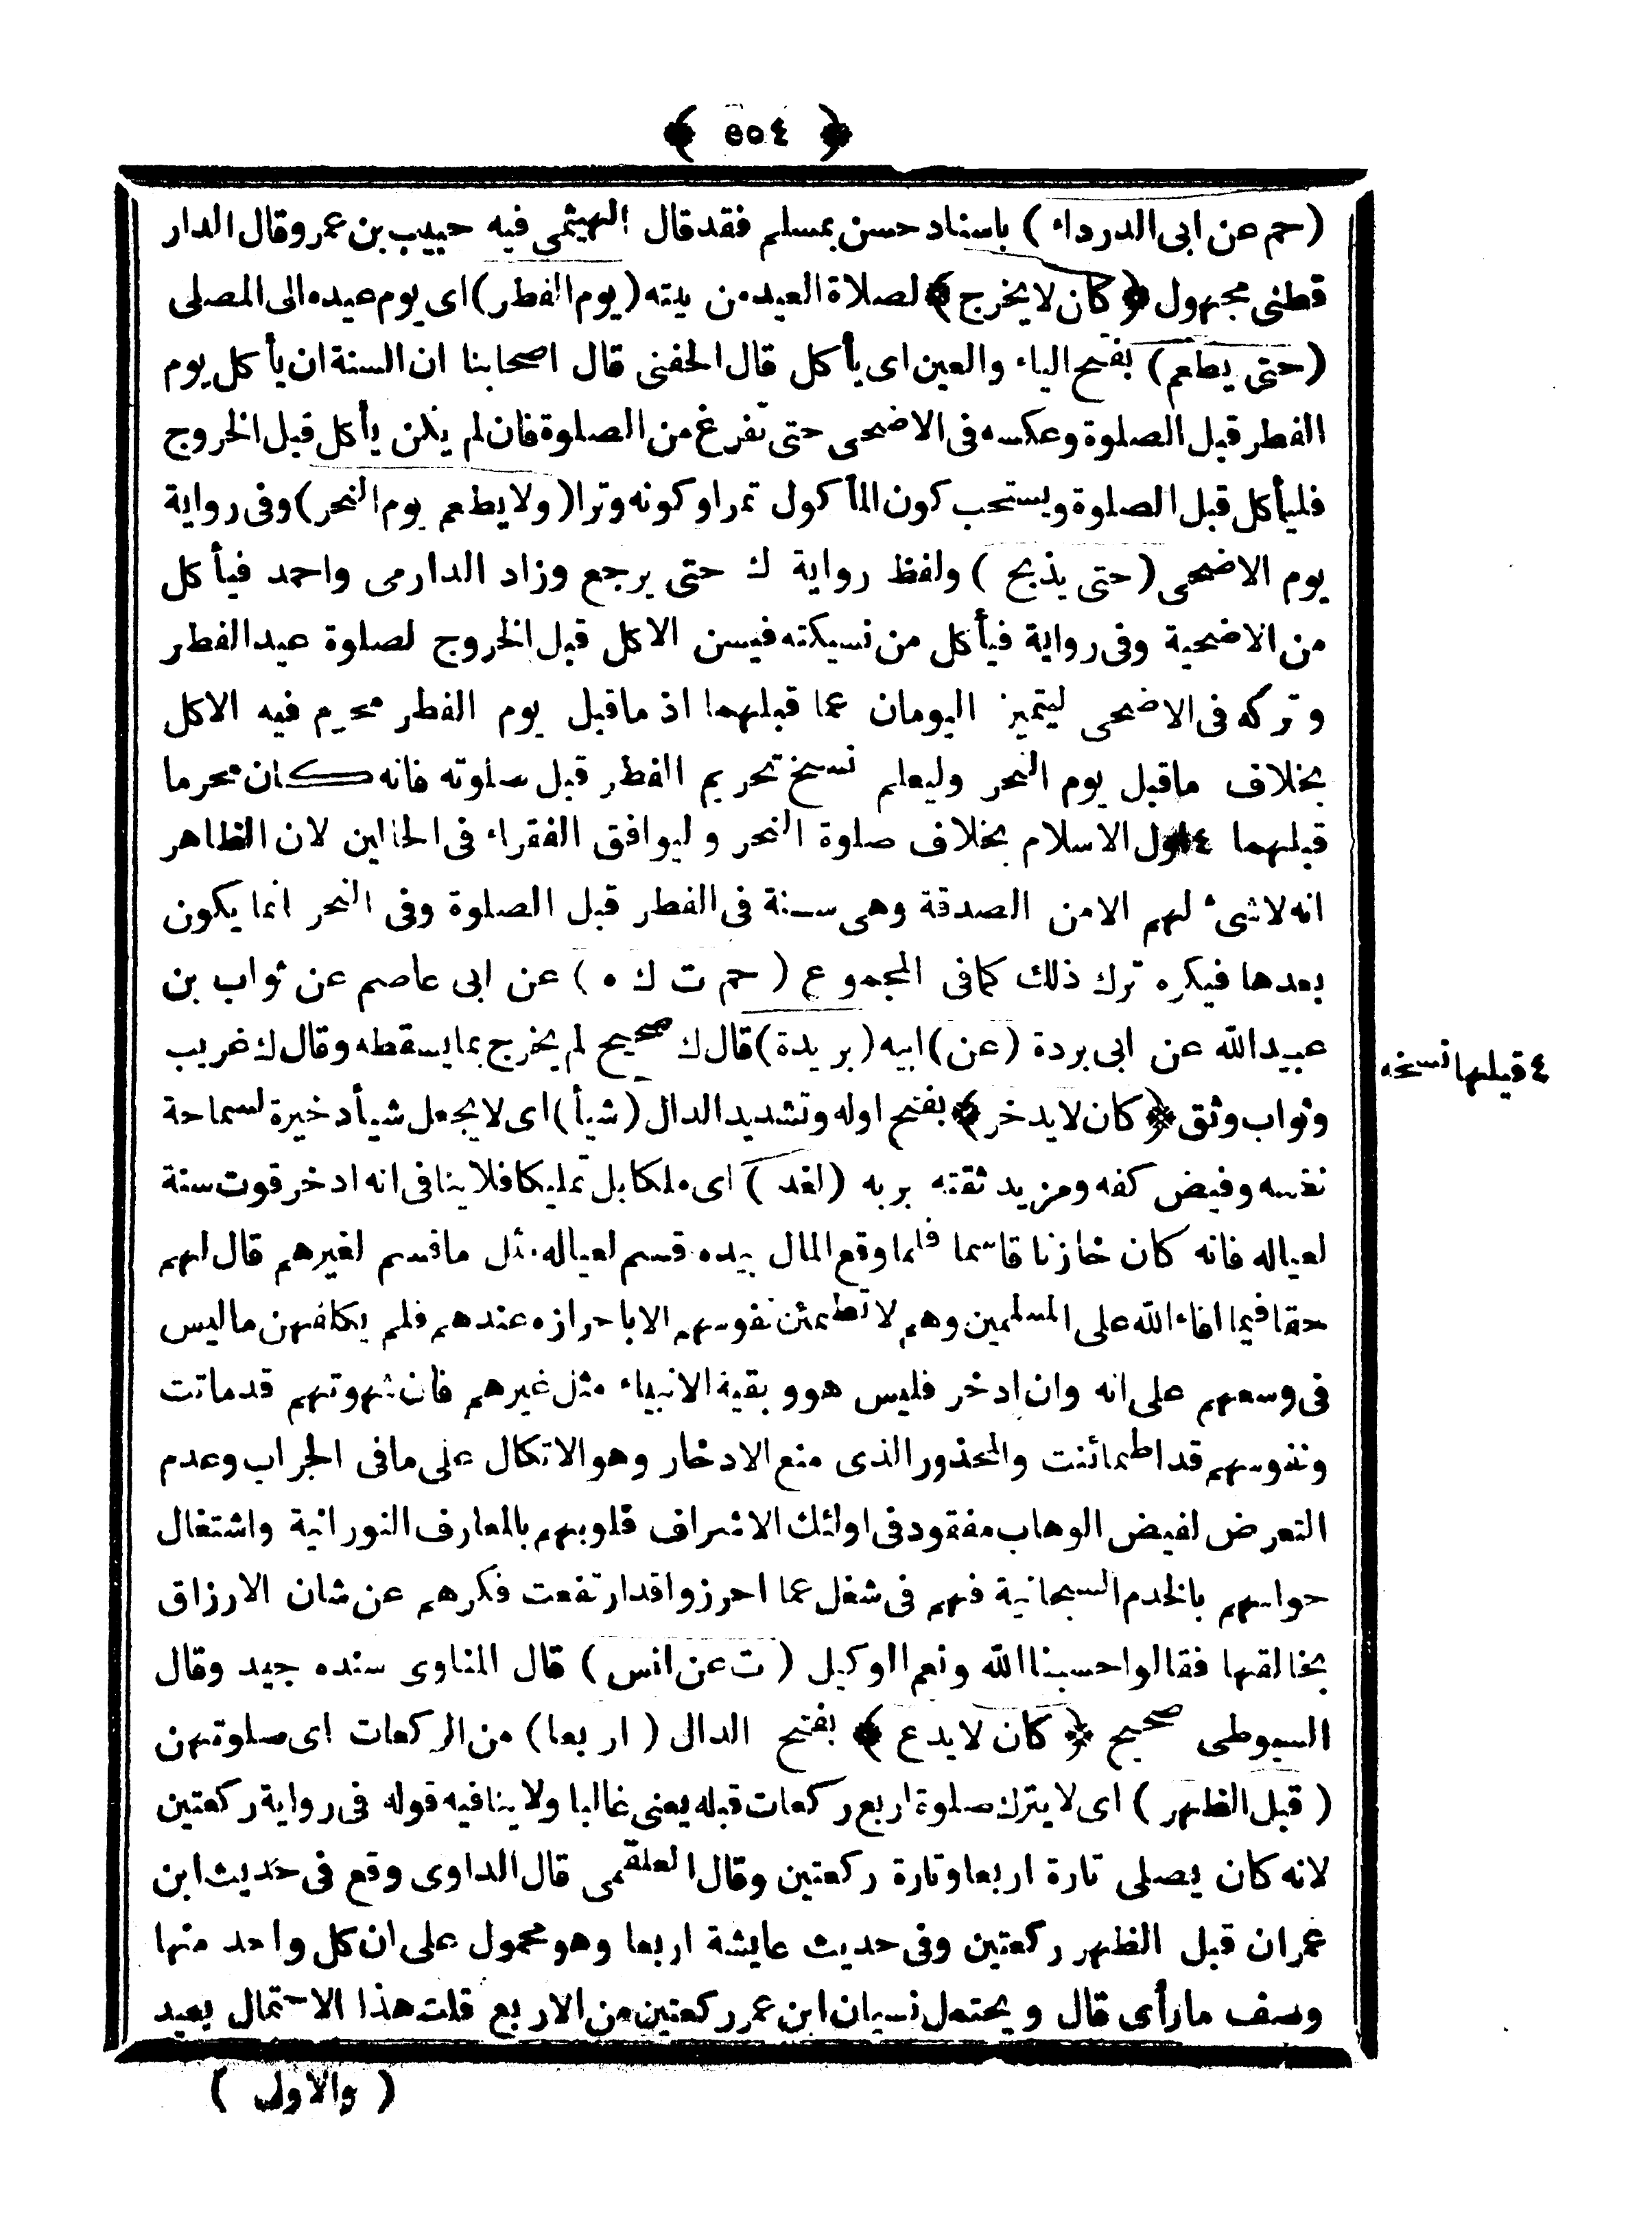 ﴿ ٥٥٤ ﴾
(حم عن ابى الدرداء) باسناد حسن بمسلم فقد قال الهيثمى فيه حبيب بن عمرو قال الدار
قطنى مجهول ﴿ كان لا يخرج ﴾ لصلاة العيد من بيته (يوم الفطر) اى يوم عيده الى المصلى
(حتى يطعم) بفتح الياء والعين اى يأكل قال الحفنى قال اصحابنا ان السنة ان يأكل يوم
الفطر قبل الصلوة وعكسه فى الاضحى حتى تفرغ من الصلوة فان لم يكن يأكل قبل الخروج
فليأكل قبل الصلوة ويستحب كون المأكول تمرا وكونه وترا (ولا يطعم يوم النحر) وفى رواية
يوم الاضحى (حتى يذبح) ولفظ رواية ك حتى يرجع وزاد الدارمى واحمد فيأكل
من الاضحية وفى رواية فيأكل من نسيكته فيسن الاكل قبل الخروج لصلوة عيد الفطر
وتركه فى الاضحى ليتميز اليومان عما قبلهما اذ ما قبل يوم الفطر محرم فيه الاكل
بخلاف ما قبل يوم النحر وليعلم نسخ تحريم الفطر قبل صلوته فانه كان محرما
قبلهما ٤ اول الاسلام بخلاف صلوة النحر وليوافق الفقراء فى الحالين لان الظاهر
انه لا شئ لهم الا من الصدقة وهى سنة فى الفطر قبل الصلوة وفى النحر انما يكون
بعدها فيكره ترك ذلك كما فى المجموع (حم ت ك ه) عن ابى عاصم عن ثواب بن
عبيد الله عن ابى بردة (عن) ابيه (بريدة) قال ك صحيح لم يخرج بما يسقطه وقال ك غريب
٤ قبلها نسخه
وثواب وثق ﴿ كان لا يدخر ﴾ بفتح اوله وتشديد الدال (شيأ) اى لا يجعل شيأ دخيرة لسماحة
نفسه وفيض كفه ومزيد ثقته بربه (لغد) اى ملكا بل تمليكا فلا ينافى انه ادخر قوت سنة
لعياله فانه كان خازنا قاسما فلما وقع المال بيده قسم لعياله مثل ما قسم لغيرهم قال لهم
حقا فيما افاء الله على المسلمين وهم لا تطمئن نفوسهم الا باحرازه عندهم فلم يكلفهن ما ليس
فى وسعهم على انه وان ادخر فليس هو وبقية الانبياء مثل غيرهم فان شهوتهم قد ماتت
ونفوسهم قد اطمائنت والمحذور الذى منع الادخار وهو الاتكال على ما فى الجراب وعدم
التعرض لفيض الوهاب مفقود فى اولئك الاشراف قلوبهم بالمعارف النورانية واشتغال
حواسهم بالخدم السبحانية فهم فى شغل عما احرزوا قد ارتفعت فكرهم عن شان الارزاق
بخالقها فقالوا حسبنا الله ونعم الوكيل (ت عن انس) قال المناوى سنده جيد وقال
السيوطى صحيح ﴿ كان لا يدع ﴾ بفتح الدال (اربعا) من الركعات اى صلوتهن
(قبل الظهر) اى لا يترك صلوة اربع ركعات قبله يعنى غالبا ولا ينافيه قوله فى رواية ركعتين
لانه كان يصلى تارة اربعا وتارة ركعتين وقال العلقمى قال الداوى وقع فى حديث ابن
عمر ان قبل الظهر ركعتين وفى حديث عايشة اربعا وهو محمول على ان كل واحد منها
وصف ما رأى قال ويحتمل نسيان ابن عمر ركعتين من الاربع قلت هذا الاحتمال بعيد
(والاول)